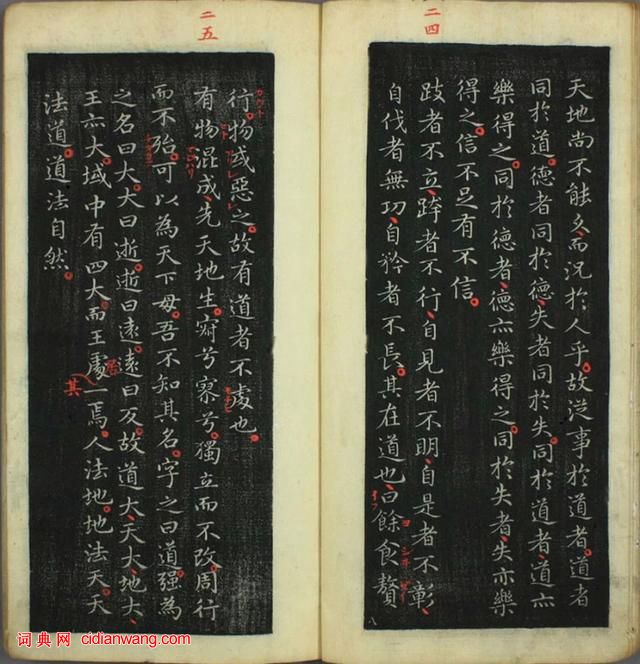 二四
天地尚不能久而況於人乎故從事於道者道者
同於道德者同於德失者同於失同於道者道亦
樂得之同於德者德亦樂得之同於失者失亦樂
得之信不足有不信
跂者不立跨者不行自見者不明自是者不彰
自伐者無功自矜者不長其在道也曰餘食贅
八
二五
行物或惡之故有道者不處也
有物混成先天地生寂兮寥兮獨立而不改周行
而不殆可以為天下母吾不知其名字之曰道强為
之名曰大大曰逝逝曰遠遠曰反故道大天大地大
王亦大域中有四大而王處一焉人法地地法天天
其
法道道法自然
词典网 cidianwang.com